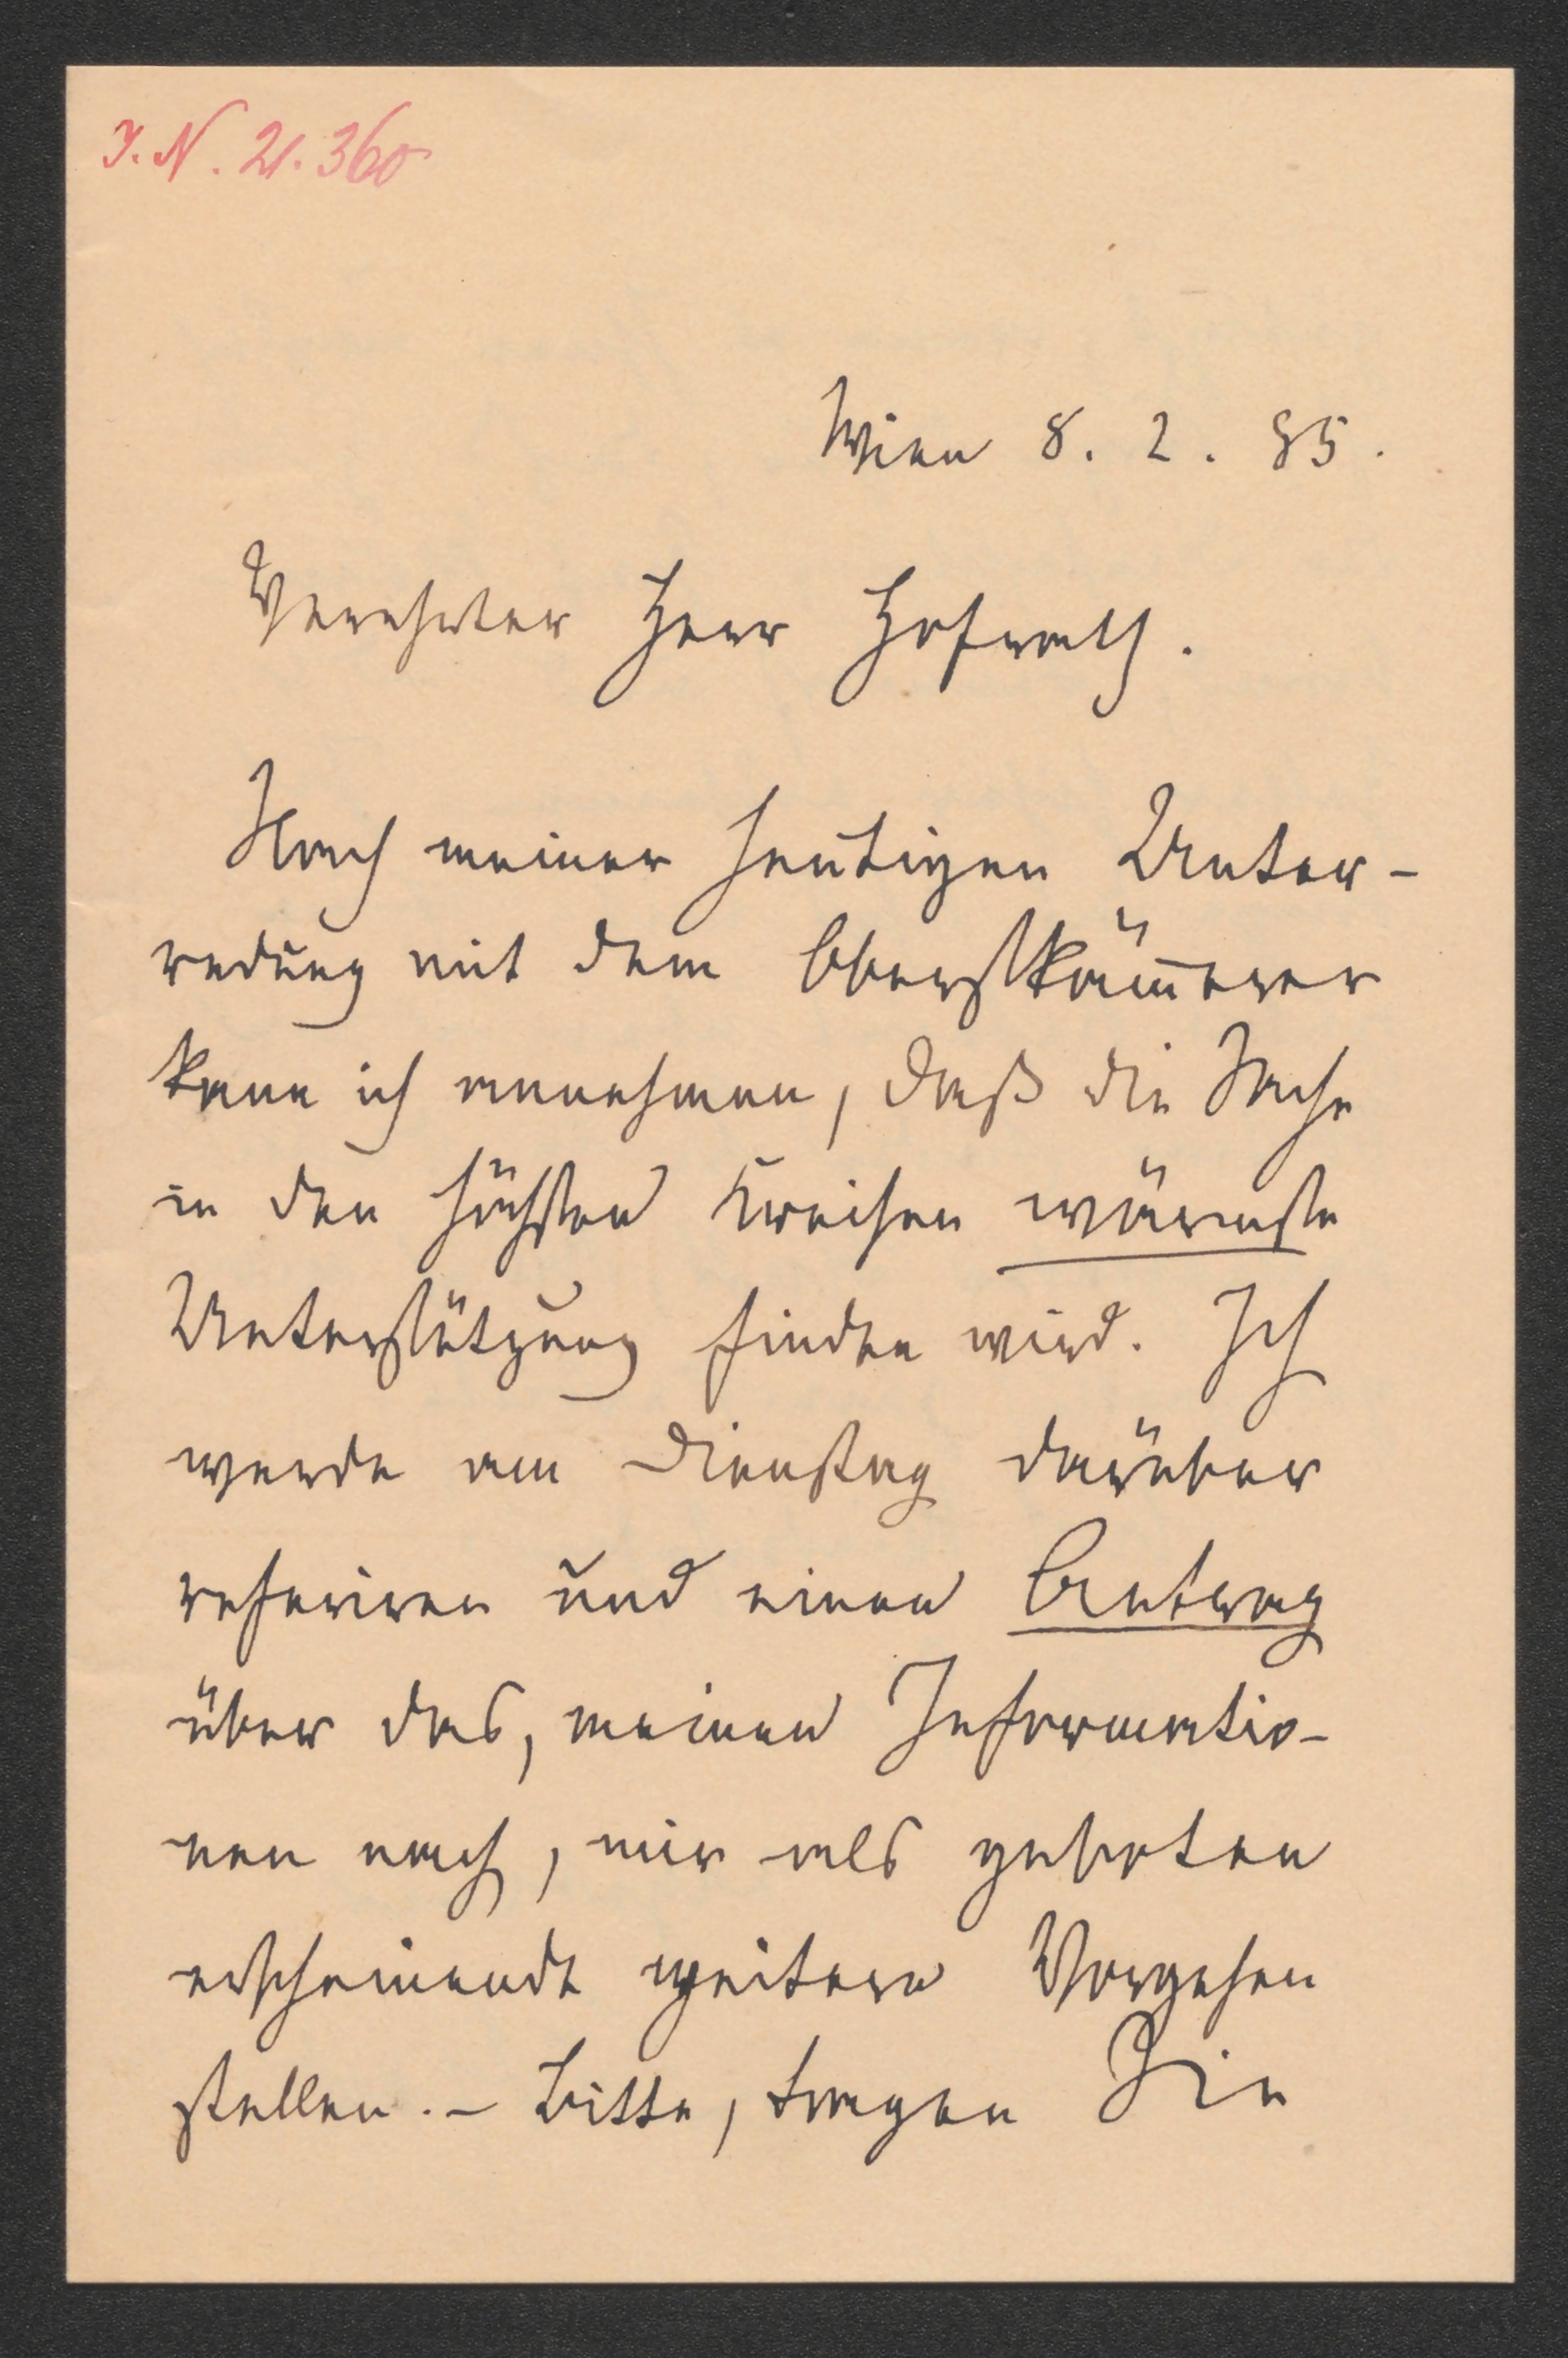 I. N. 21.360
Wien 8. 2. 85.
Verehrter Herr Hofrath.
Nach meiner heutigen Unter-
redung mit dem Oberstkäm̅erer
kann ich annehmen, daß die Sache
in den höchsten Kreisen wärmste
Unterstützung finden wird. Ich
werde am Dienstag darüber
referiren und einen Antrag
über das, meinen Informatio-
nen nach, mir als geboten
erscheinende weitere Vorgehen
stellen. – Bitte, tragen Sie